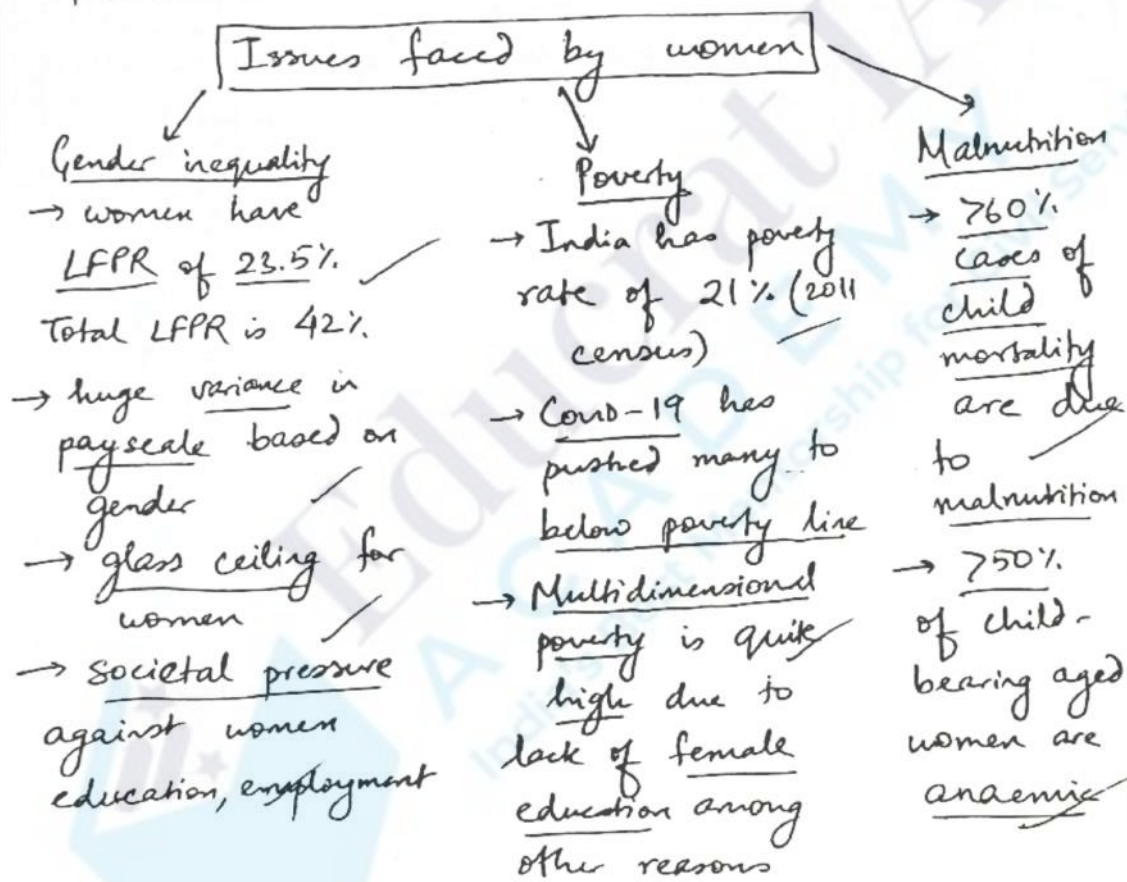 Issues faced by women
Gender inequality
→ women have
LFPR of 23.5%.
Total LFPR is 42%.
→ huge variance in
payscale based on
gender
→ glass ceiling for
women
→ societal pressure
against women
education, employment
Poverty
→ India has poverty
rate of 21% (2011
census)
→ Covid-19 has
pushed many to
below poverty line
→ Multidimensional
poverty is quite
high due to
lack of female
education among
other reasons
Malnutrition
→ >60%
cases of
child
mortality
are due
to
malnutrition
→ >50%
of child-
bearing aged
women are
anaemic
Educrat IA
ACADEMY